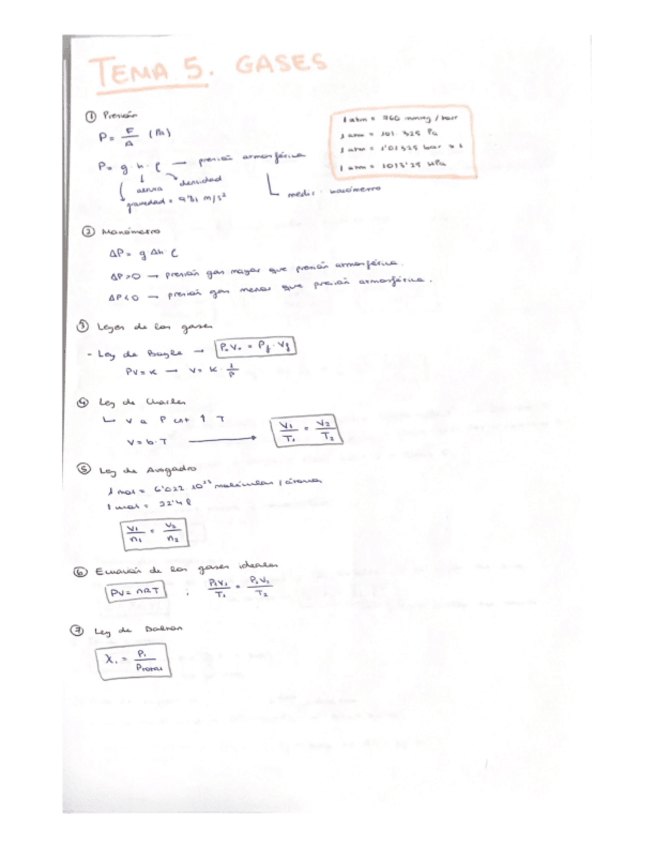 TEMA 5. GASES
① Presión
P = F/A (Pa)
P = g · h · ρ → presión atmosférica
altura
densidad
gravedad = 9'81 m/s²
medir: barómetro
1 atm = 760 mmHg / torr
1 atm = 101 325 Pa
1 atm = 1'01325 bar
1 atm = 1013'25 hPa
② Manómetro
ΔP = g Δh ρ
ΔP>0 → presión gas mayor que presión atmosférica.
ΔP<0 → presión gas menor que presión atmosférica.
③ Leyes de los gases
- Ley de Boyle → P₀V₀ = Pf · Vf
PV = K → V = K · 1/P
④ Ley de Charles
V a P cst ↑ T
V = b · T → V₁/T₁ = V₂/T₂
⑤ Ley de Avogadro
1 mol = 6'022 · 10²³ moléculas / átomos
1 mol = 22'4 l
V₁/n₁ = V₂/n₂
⑥ Ecuación de los gases ideales
PV = nRT ; P₁V₁/T₁ = P₂V₂/T₂
⑦ Ley de Dalton
Xi = Pi/Ptotal